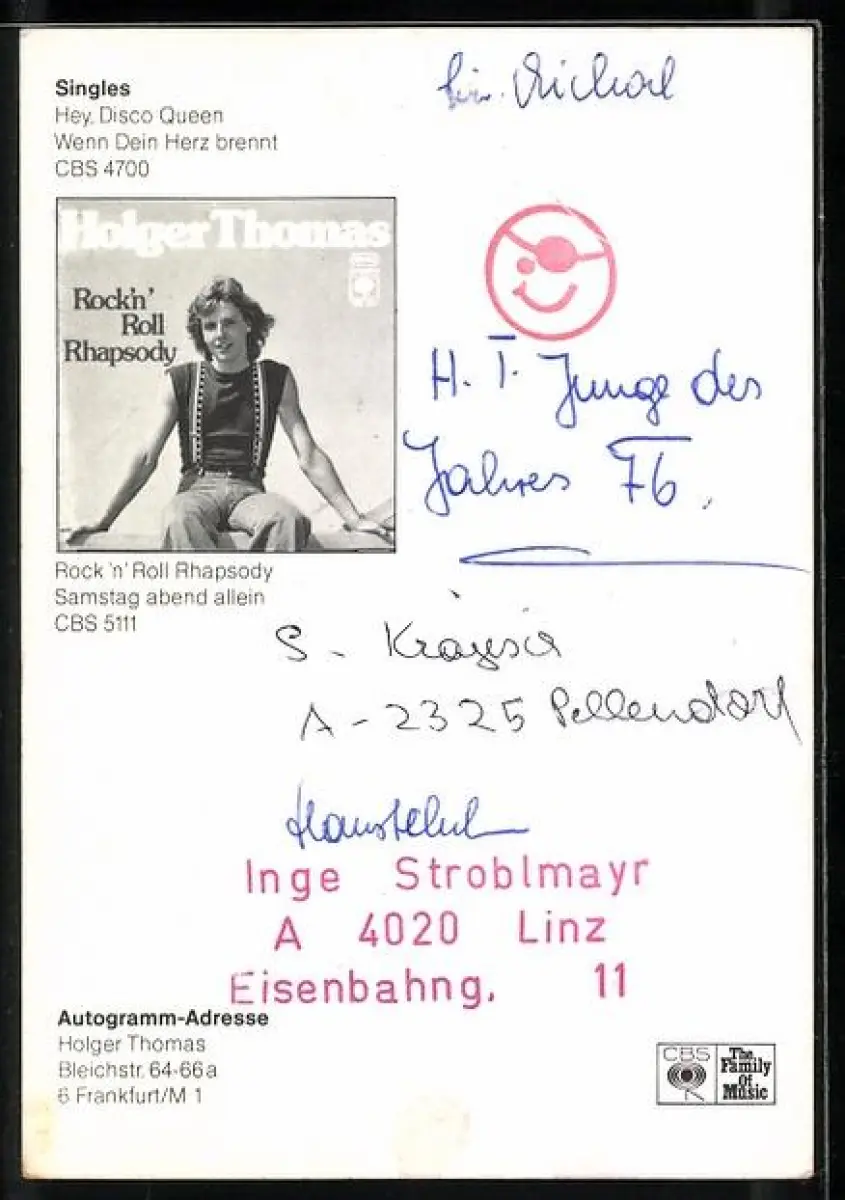 Singles
Hey, Disco Queen
Wenn Dein Herz brennt
CBS 4700
Holger Thomas
Rock'n'
Roll
Rhapsody
Rock 'n' Roll Rhapsody
Samstag abend allein
CBS 5111
H. T. Junge des
Jahres 76.
S.
A - 2325 Pellendorf
Inge Stroblmayr
A 4020 Linz
Eisenbahng, 11
Autogramm-Adresse
Holger Thomas
Bleichstr. 64-66a
6 Frankfurt/M 1
CBS
The
Family
Of
Music